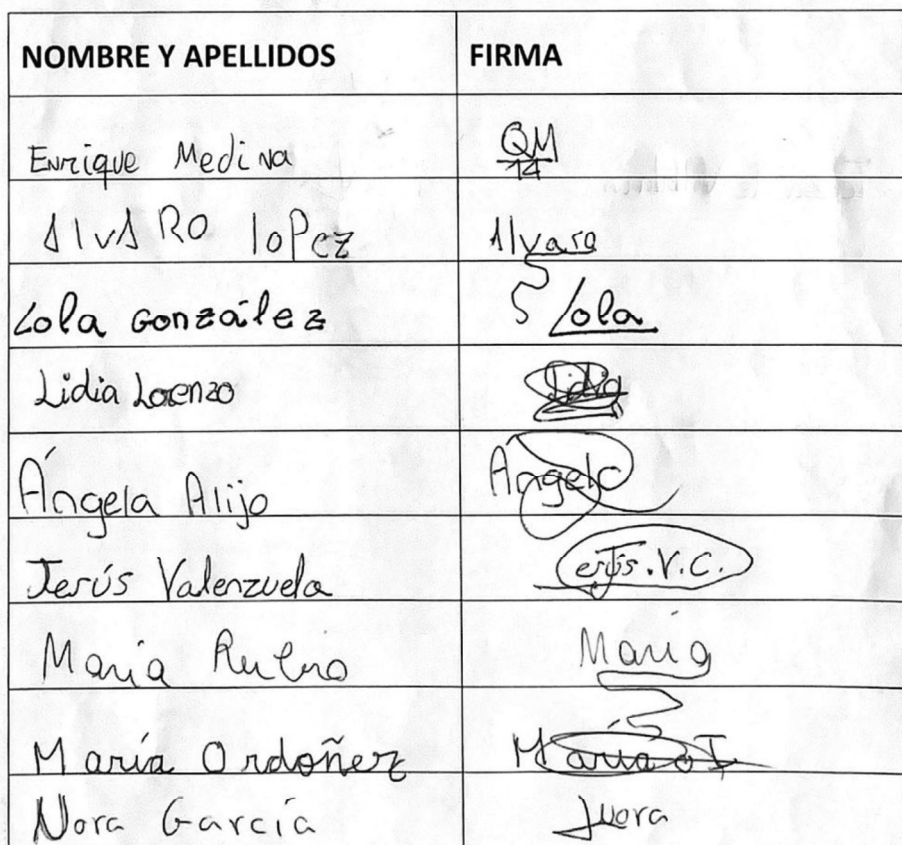 NOMBRE Y APELLIDOS FIRMA
Enrique Medina QM 14
AlvARO loPez Alvaro
Lola González Lola
Lidia Lorenzo Lidia
Ángela Alijo Ángela
Jesús Valenzuela Jesús.V.C.
María Rubio María
María Ordoñez María
Nora García Nora